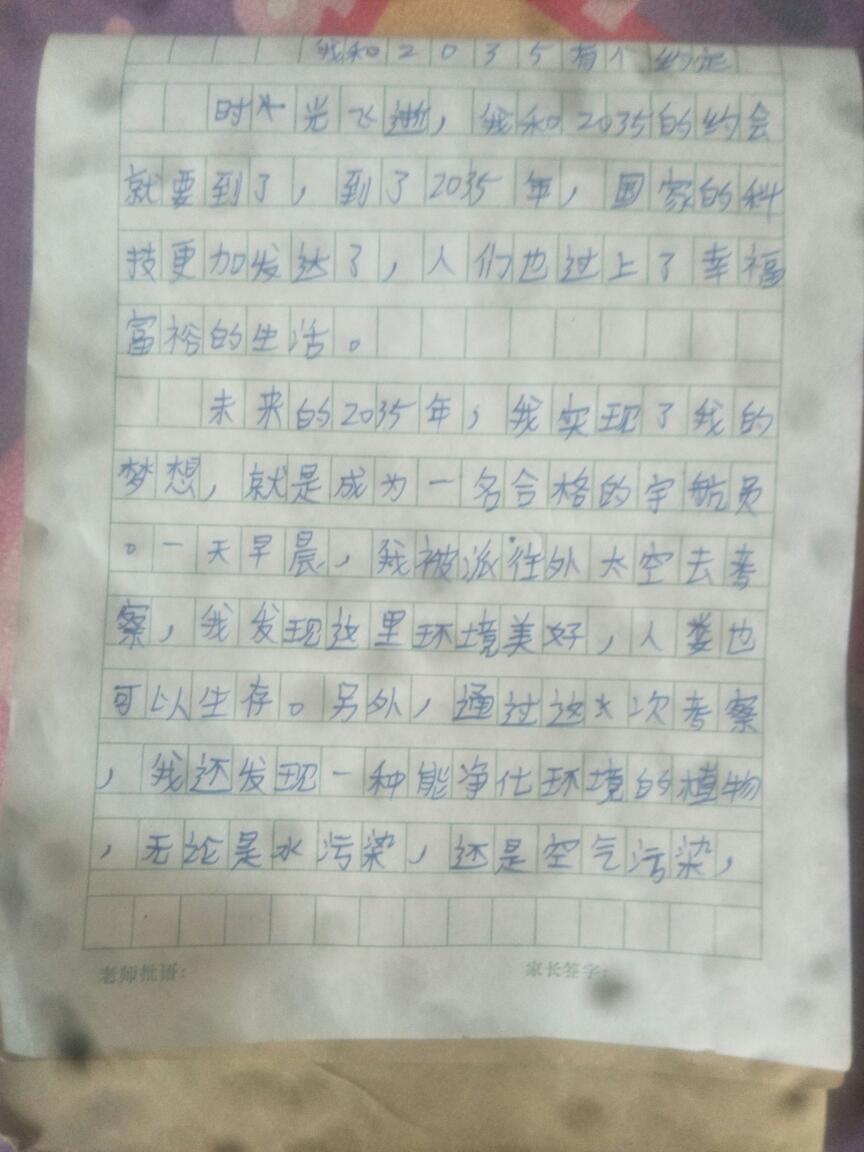 我和2035有个约定
时光飞逝，我和2035的约会
就要到了，到了2035年，国家的科
技更加发达了，人们也过上了幸福
富裕的生活。
未来的2035年，我实现了我的
梦想，就是成为一名合格的宇航员
。一天早晨，我被派往外太空去考
察，我发现这里环境美好，人类也
可以生存。另外，通过这次考察
，我还发现一种能净化环境的植物
，无论是水污染，还是空气污染，
老师批语：
家长签字：